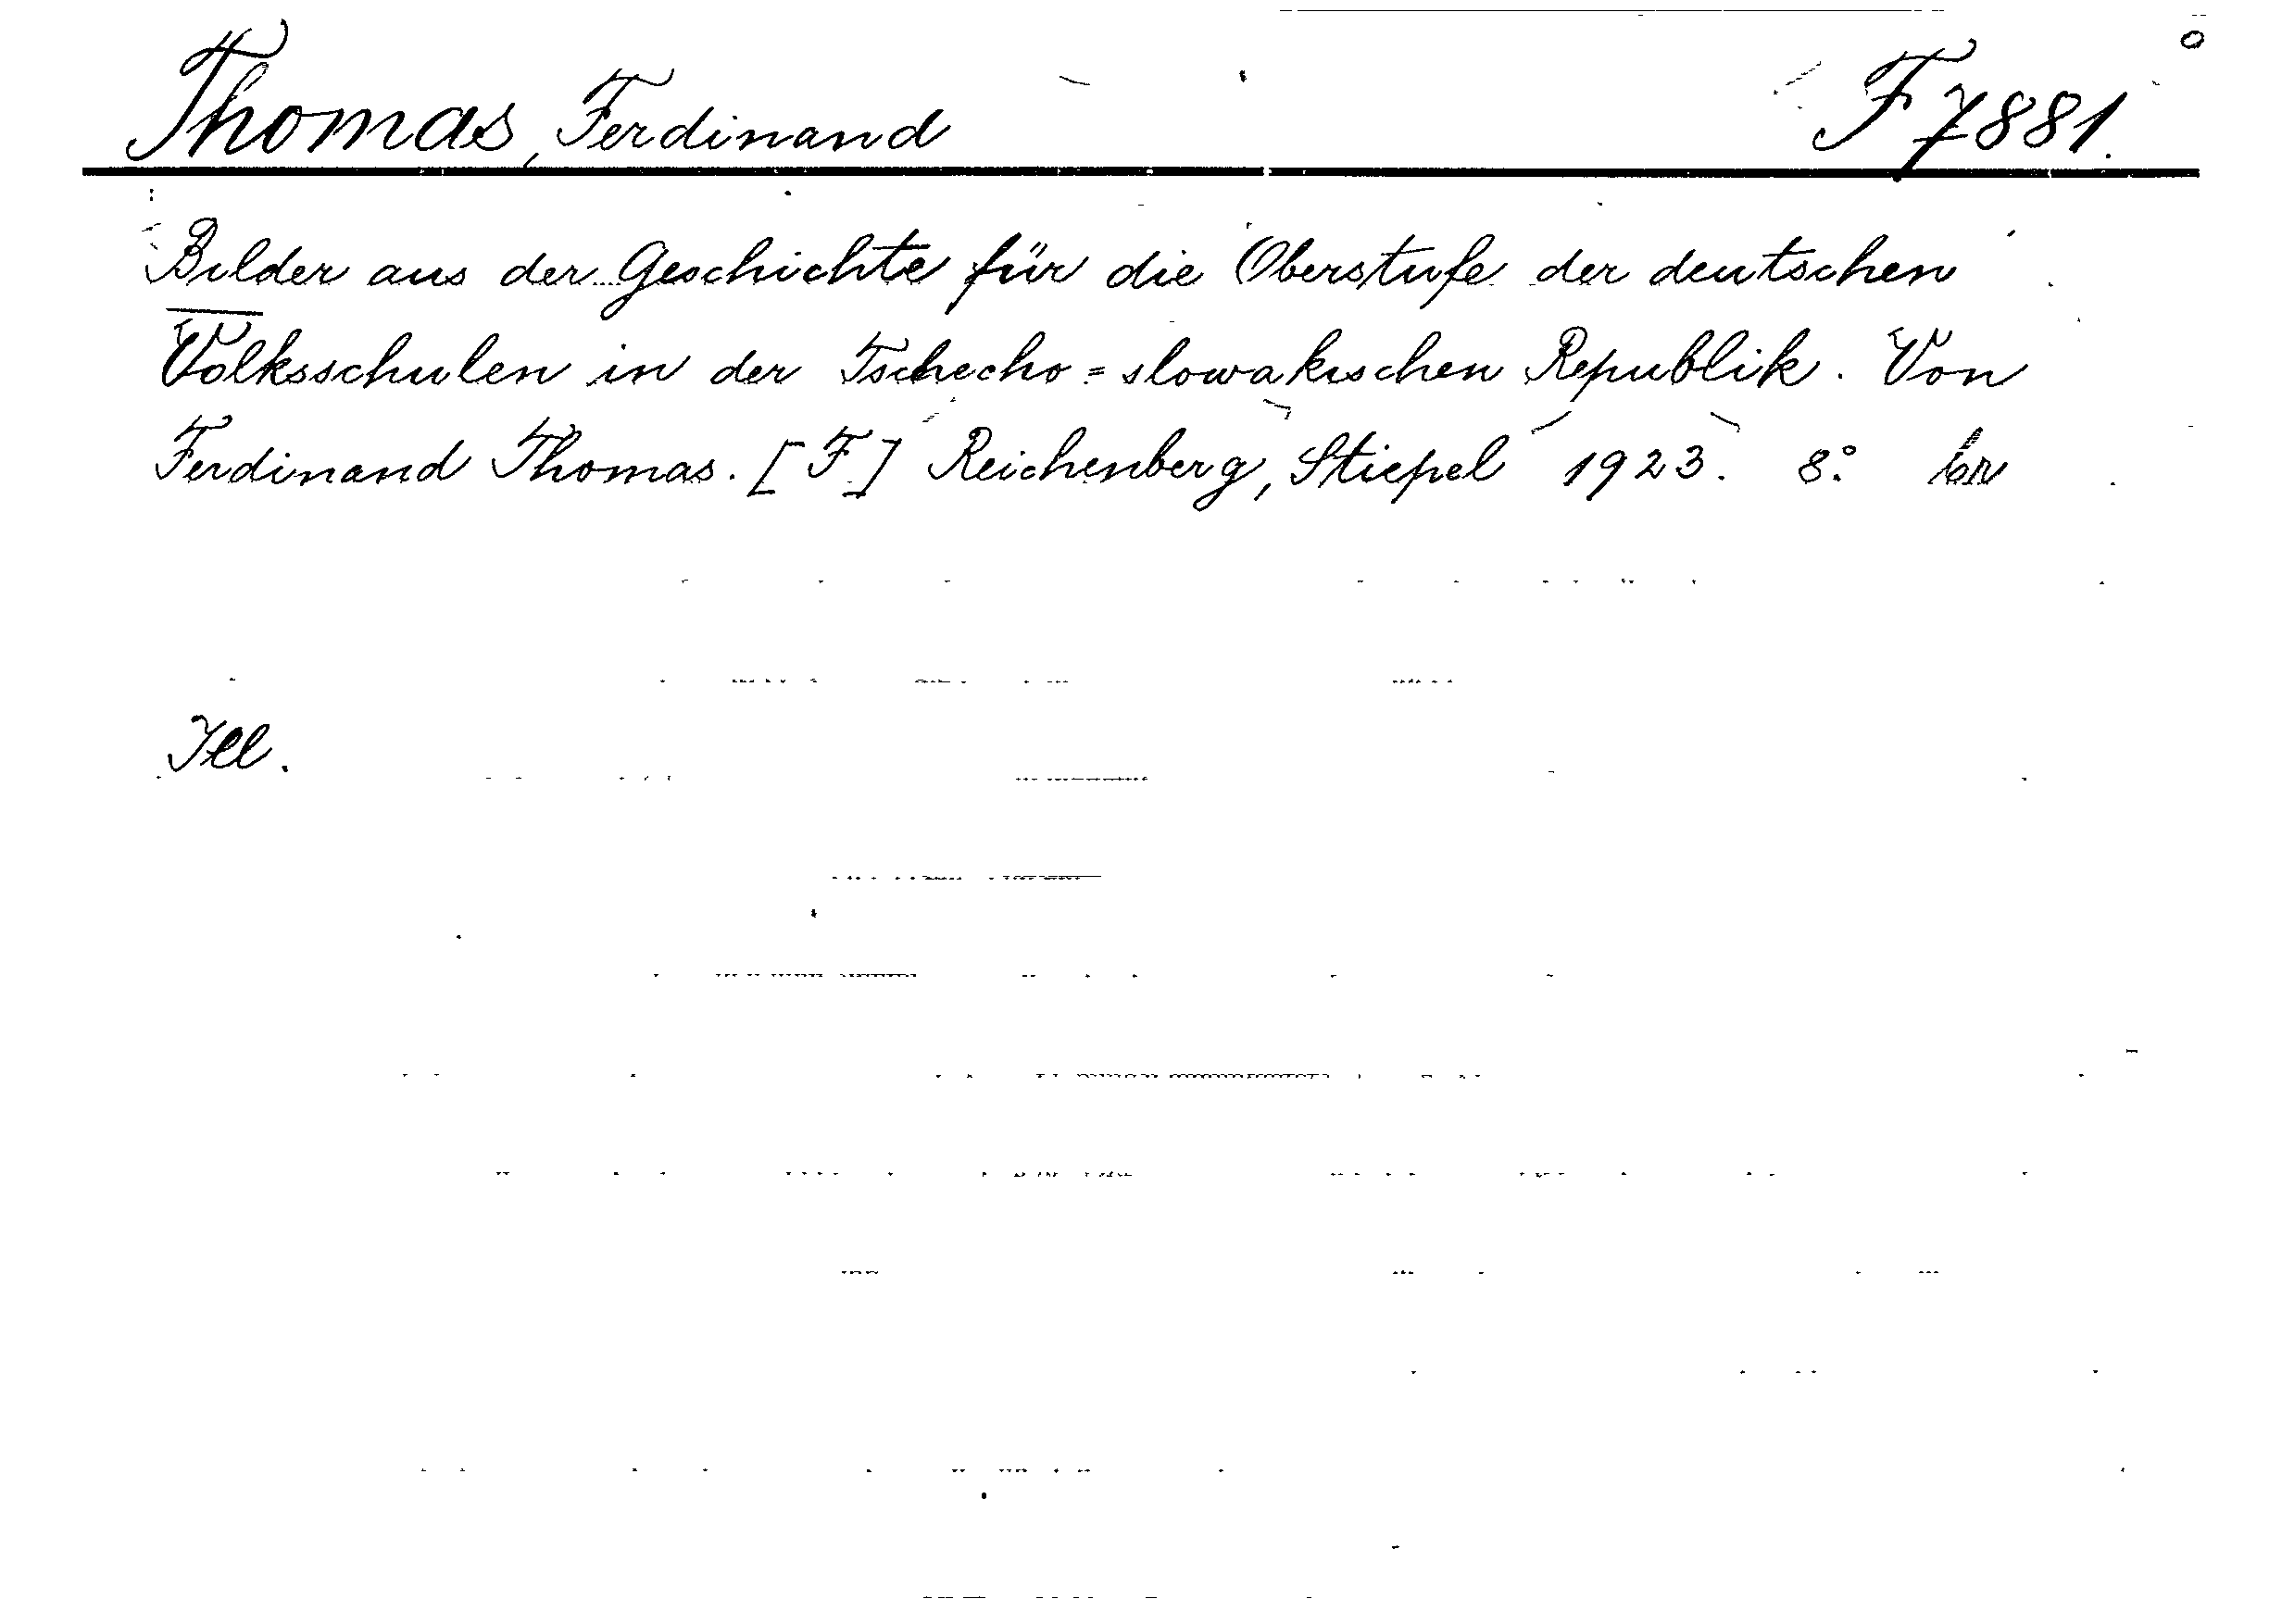 Thomas, Ferdinand F 7881.
Bilder aus der Geschichte für die Oberstufe der deutschen
Volksschulen in der Tschecho=slowakischen Republik. Von
Ferdinand Thomas. [F] Reichenberg, Stiepel 1923. 8° br
Ill.